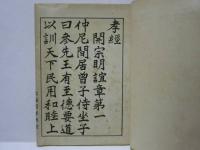 孝經
開宗明誼章第一
仲尼閒居曾子侍坐子
曰參先王有至德要道
以訓天下民用和睦上